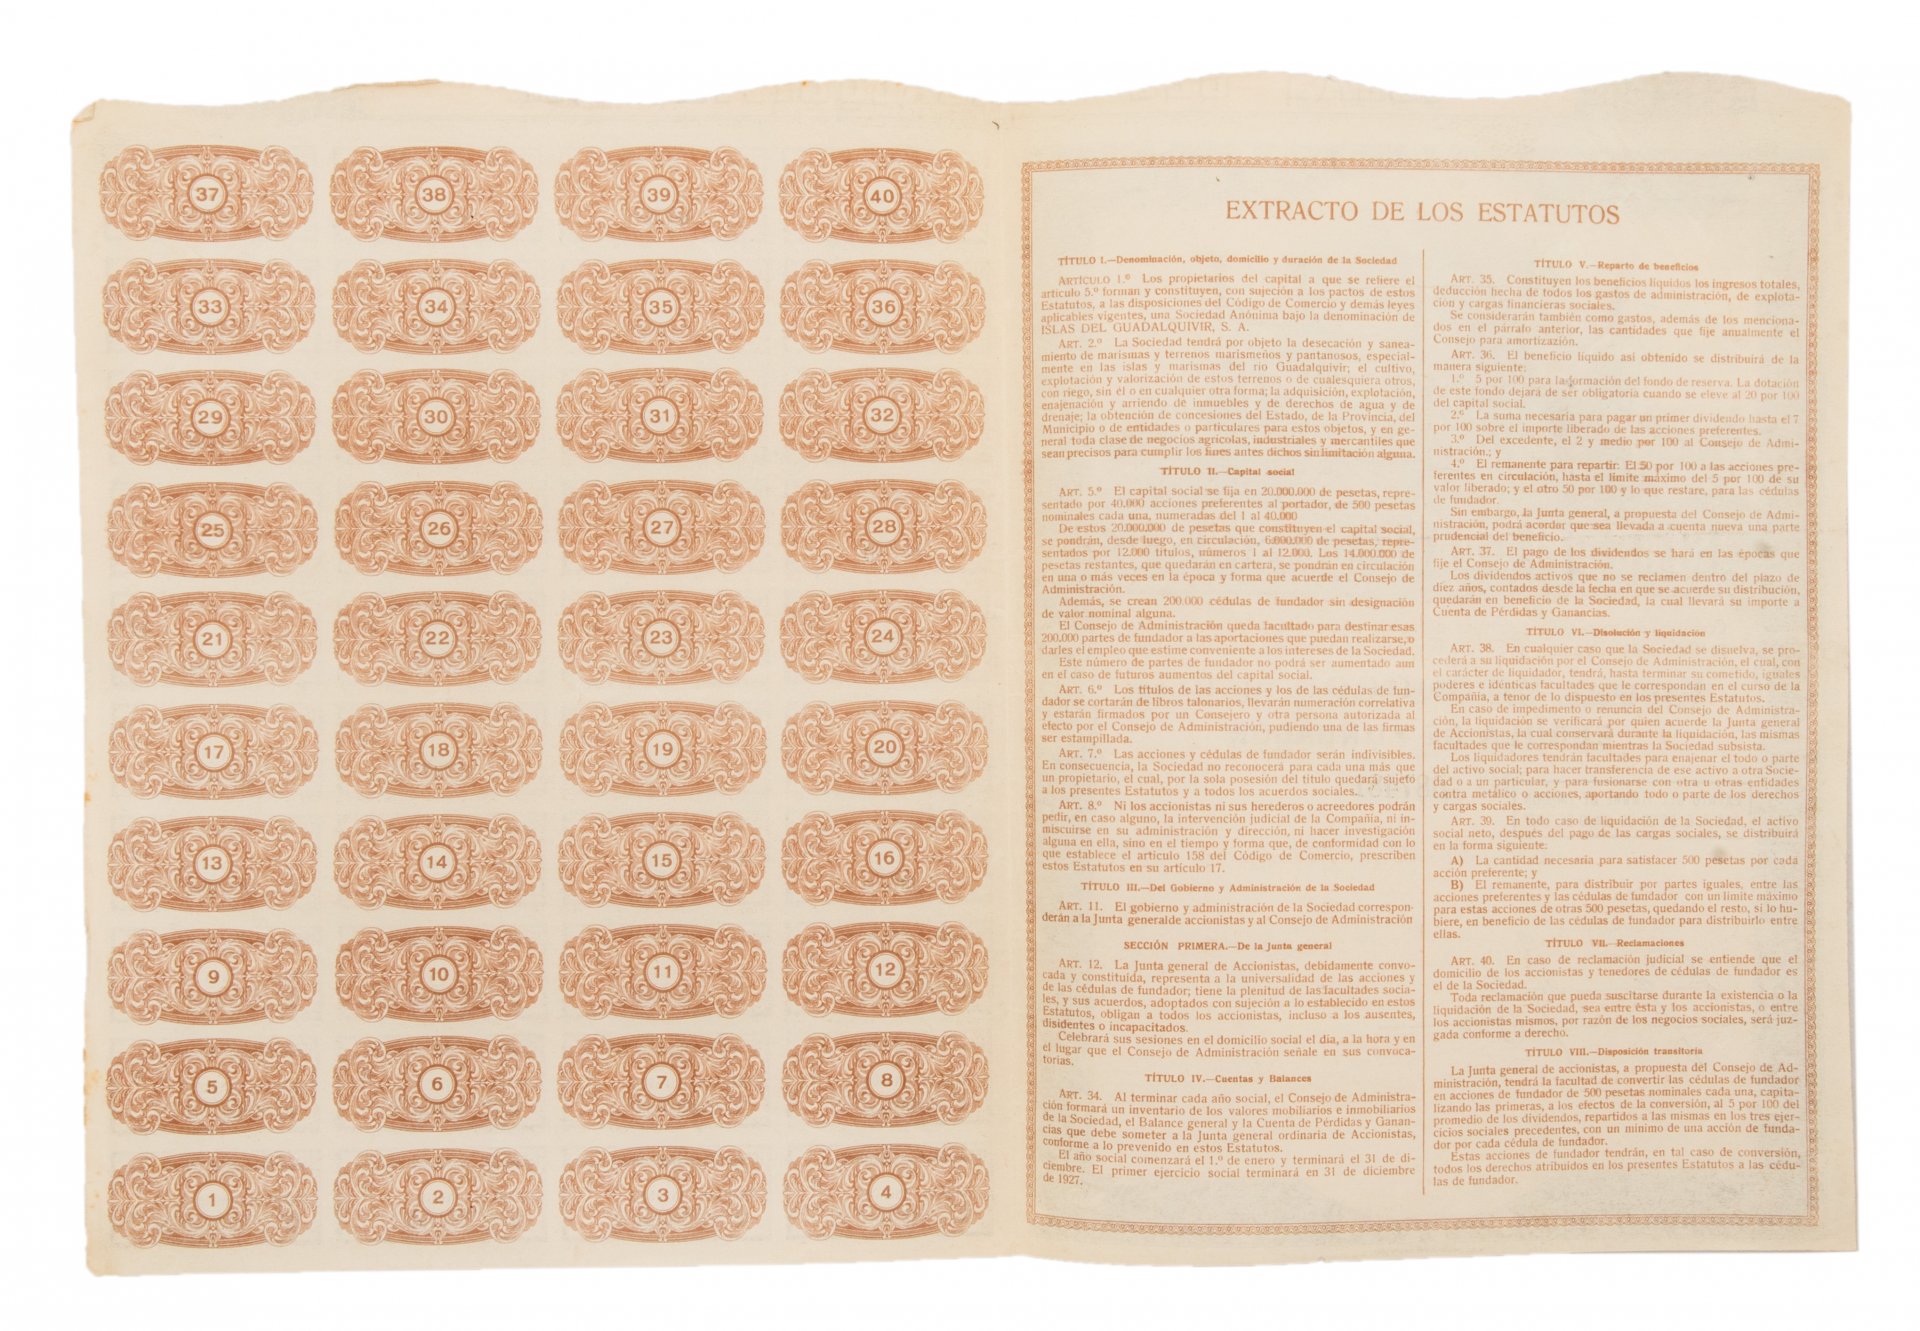 37 38 39 40
33 34 35 36
29 30 31 32
25 26 27 28
21 22 23 24
17 18 19 20
13 14 15 16
9 10 11 12
5 6 7 8
1 2 3 4
EXTRACTO DE LOS ESTATUTOS
TÍTULO I.—Denominación, objeto, domicilio y duración de la Sociedad
ARTÍCULO 1.º Los propietarios del capital a que se refiere el
artículo 5.º forman y constituyen, con sujeción a los pactos de estos
Estatutos, a las disposiciones del Código de Comercio y demás leyes
aplicables vigentes, una Sociedad Anónima bajo la denominación de
ISLAS DEL GUADALQUIVIR, S. A.
ART. 2.º La Sociedad tendrá por objeto la desecación y sanea-
miento de marismas y terrenos marismeños y pantanosos, especial-
mente en las islas y marismas del río Guadalquivir; el cultivo,
explotación y valorización de estos terrenos o de cualesquiera otros,
con riego, sin él o en cualquier otra forma; la adquisición, explotación,
enajenación y arriendo de inmuebles y de derechos de agua y de
drenaje; la obtención de concesiones del Estado, de la Provincia, del
Municipio o de entidades o particulares para estos objetos, y en ge-
neral toda clase de negocios agrícolas, industriales y mercantiles que
sean precisos para cumplir los fines antes dichos sin limitación alguna.
TÍTULO II.—Capital social
ART. 5.º El capital social se fija en 20.000.000 de pesetas, repre-
sentado por 40.000 acciones preferentes al portador, de 500 pesetas
nominales cada una, numeradas del 1 al 40.000
De estos 20.000.000 de pesetas que constituyen el capital social,
se pondrán, desde luego, en circulación, 6.000.000 de pesetas, repre-
sentados por 12.000 títulos, números 1 al 12.000. Los 14.000.000 de
pesetas restantes, que quedarán en cartera, se pondrán en circulación
en una o más veces en la época y forma que acuerde el Consejo de
Administración.
Además, se crean 200.000 cédulas de fundador sin designación
de valor nominal alguna.
El Consejo de Administración queda facultado para destinar esas
200.000 partes de fundador a las aportaciones que puedan realizarse, o
darles el empleo que estime conveniente a los intereses de la Sociedad.
Este número de partes de fundador no podrá ser aumentado aun
en el caso de futuros aumentos del capital social.
ART. 6.º Los títulos de las acciones y los de las cédulas de fun-
dador se cortarán de libros talonarios, llevarán numeración correlativa
y estarán firmados por un Consejero y otra persona autorizada al
efecto por el Consejo de Administración, pudiendo una de las firmas
ser estampillada.
ART. 7.º Las acciones y cédulas de fundador serán indivisibles.
En consecuencia, la Sociedad no reconocerá para cada una más que
un propietario, el cual, por la sola posesión del título quedará sujeto
a los presentes Estatutos y a todos los acuerdos sociales.
ART. 8.º Ni los accionistas ni sus herederos o acreedores podrán
pedir, en caso alguno, la intervención judicial de la Compañía, ni in-
miscuirse en su administración y dirección, ni hacer investigación
alguna en ella, sino en el tiempo y forma que, de conformidad con lo
que establece el artículo 158 del Código de Comercio, prescriben
estos Estatutos en su artículo 17.
TÍTULO III.—Del Gobierno y Administración de la Sociedad
ART. 11. El gobierno y administración de la Sociedad correspon-
derán a la Junta general de accionistas y al Consejo de Administración
SECCIÓN PRIMERA.—De la Junta general
ART. 12. La Junta general de Accionistas, debidamente convo-
cada y constituída, representa a la universalidad de las acciones y
de las cédulas de fundador; tiene la plenitud de las facultades socia-
les, y sus acuerdos, adoptados con sujeción a lo establecido en estos
Estatutos, obligan a todos los accionistas, incluso a los ausentes,
disidentes o incapacitados.
Celebrará sus sesiones en el domicilio social el día, a la hora y en
el lugar que el Consejo de Administración señale en sus convoca-
torias.
TÍTULO IV.—Cuentas y Balances
ART. 34. Al terminar cada año social, el Consejo de Administra-
ción formará un inventario de los valores mobiliarios e inmobiliarios
de la Sociedad, el Balance general y la Cuenta de Pérdidas y Ganan-
cias que debe someter a la Junta general ordinaria de Accionistas,
conforme a lo prevenido en estos Estatutos.
El año social comenzará el 1.º de enero y terminará el 31 de di-
ciembre. El primer ejercicio social terminará en 31 de diciembre
de 1927.
TÍTULO V.—Reparto de beneficios
ART. 35. Constituyen los beneficios líquidos los ingresos totales,
deducción hecha de todos los gastos de administración, de explota-
ción y cargas financieras sociales.
Se considerarán también como gastos, además de los menciona-
dos en el párrafo anterior, las cantidades que fije anualmente el
Consejo para amortización.
ART. 36. El beneficio líquido así obtenido se distribuirá de la
manera siguiente:
1.º 5 por 100 para la formación del fondo de reserva. La dotación
de este fondo dejará de ser obligatoria cuando se eleve al 20 por 100
del capital social.
2.º La suma necesaria para pagar un primer dividendo hasta el 7
por 100 sobre el importe liberado de las acciones preferentes.
3.º Del excedente, el 2 y medio por 100 al Consejo de Admi-
nistración.; y
4.º El remanente para repartir: El 50 por 100 a las acciones pre-
ferentes en circulación, hasta el límite máximo del 5 por 100 de su
valor liberado; y el otro 50 por 100 y lo que restare, para las cédulas
de fundador.
Sin embargo, la Junta general, a propuesta del Consejo de Admi-
nistración, podrá acordar que sea llevada a cuenta nueva una parte
prudencial del beneficio.
ART. 37. El pago de los dividendos se hará en las épocas que
fije el Consejo de Administración.
Los dividendos activos que no se reclamen dentro del plazo de
diez años, contados desde la fecha en que se acuerde su distribución,
quedarán en beneficio de la Sociedad, la cual llevará su importe a
Cuenta de Pérdidas y Ganancias.
TÍTULO VI.—Disolución y liquidación
ART. 38. En cualquier caso que la Sociedad se disuelva, se pro-
cederá a su liquidación por el Consejo de Administración, el cual, con
el carácter de liquidador, tendrá, hasta terminar su cometido, iguales
poderes e idénticas facultades que le correspondan en el curso de la
Compañía, a tenor de lo dispuesto en los presentes Estatutos.
En caso de impedimento o renuncia del Consejo de Administra-
ción, la liquidación se verificará por quien acuerde la Junta general
de Accionistas, la cual conservará durante la liquidación, las mismas
facultades que le correspondan mientras la Sociedad subsista.
Los liquidadores tendrán facultades para enajenar el todo o parte
del activo social; para hacer transferencia de ese activo a otra Socie-
dad o a un particular, y para fusionarse con otra u otras entidades
contra metálico o acciones, aportando todo o parte de los derechos
y cargas sociales.
ART. 39. En todo caso de liquidación de la Sociedad, el activo
social neto, después del pago de las cargas sociales, se distribuirá
en la forma siguiente:
A) La cantidad necesaria para satisfacer 500 pesetas por cada
acción preferente; y
B) El remanente, para distribuir por partes iguales, entre las
acciones preferentes y las cédulas de fundador con un límite máximo
para estas acciones de otras 500 pesetas, quedando el resto, si lo hu-
biere, en beneficio de las cédulas de fundador para distribuirlo entre
ellas.
TÍTULO VII.—Reclamaciones
ART. 40. En caso de reclamación judicial se entiende que el
domicilio de los accionistas y tenedores de cédulas de fundador es
el de la Sociedad.
Toda reclamación que pueda suscitarse durante la existencia o la
liquidación de la Sociedad, sea entre ésta y los accionistas, o entre
los accionistas mismos, por razón de los negocios sociales, será juz-
gada conforme a derecho.
TÍTULO VIII.—Disposición transitoria
La Junta general de accionistas, a propuesta del Consejo de Ad-
ministración, tendrá la facultad de convertir las cédulas de fundador
en acciones de fundador de 500 pesetas nominales cada una, capita-
lizando las primeras, a los efectos de la conversión, al 5 por 100 del
promedio de los dividendos, repartidos a las mismas en los tres ejer-
cicios sociales precedentes, con un mínimo de una acción de funda-
dor por cada cédula de fundador.
Estas acciones de fundador tendrán, en tal caso de conversión,
todos los derechos atribuidos en los presentes Estatutos a las cédu-
las de fundador.